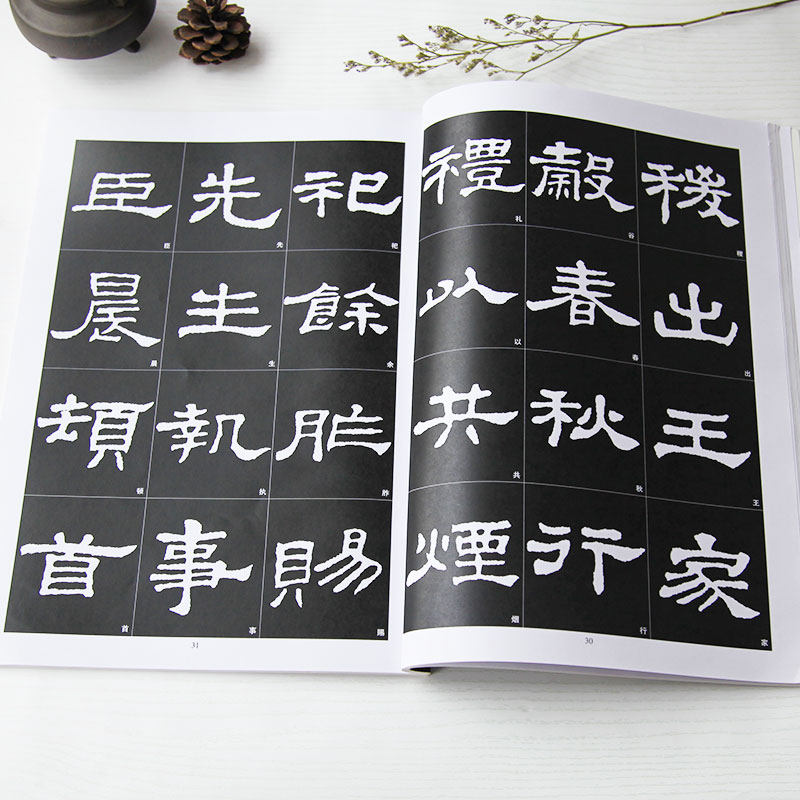 稷出王家
稷出王家
穀春秋行
谷春秋行
禮以共煙
礼以共烟
30
祀餘胙賜
祀余胙赐
先生執事
先生执事
臣晨頓首
臣晨顿首
31